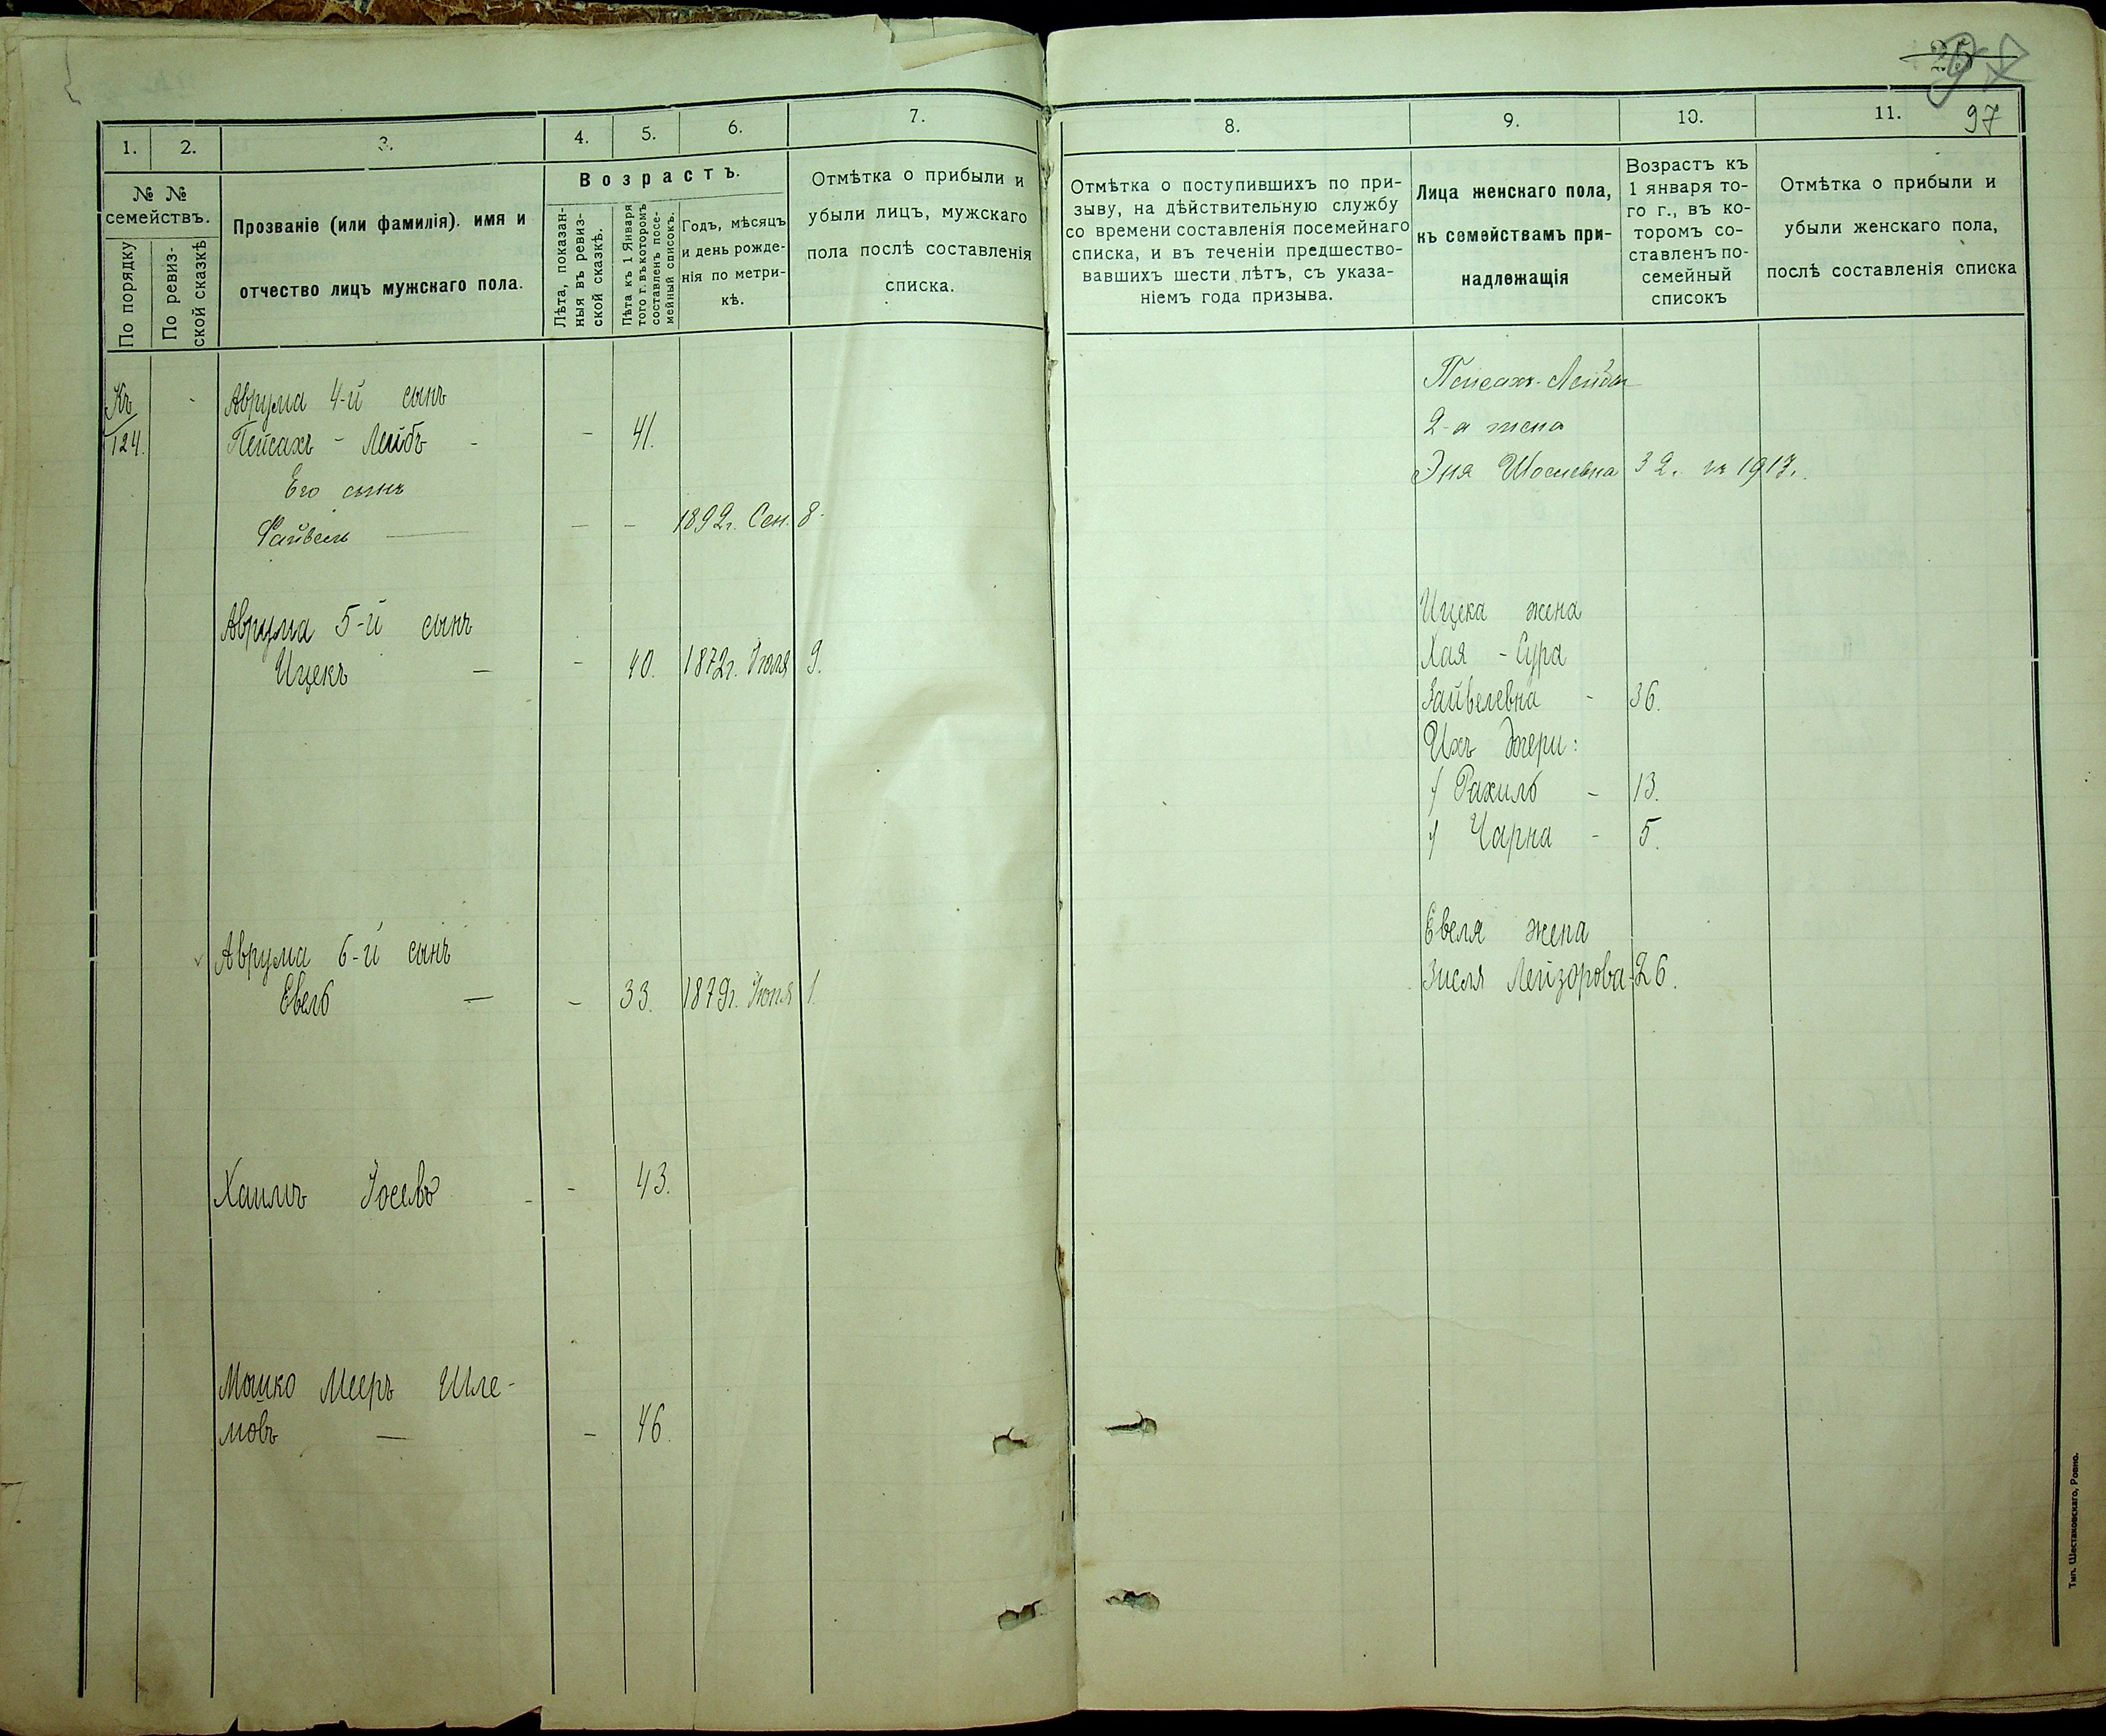 97
1. 2. 3. 4. 5. 6. 7.
№ №
семействъ.
По порядку
По ревиз-
ской сказкѣ
Прозваніе (или фамилія). имя и
отчество лицъ мужскаго пола.
Возрастъ.
Лѣта, показан-
ныя въ ревиз-
ской сказкѣ.
Лѣта къ 1 Января
того г. въ которомъ
составленъ посе-
мейный списокъ.
Годъ, мѣсяцъ
и день рожде-
нія по метри-
кѣ.
Отмѣтка о прибыли и
убыли лицъ, мужскаго
пола послѣ составленія
списка.
Къ
124.
Аврума 4-й сынъ
Пейсахъ - Лейбъ - - 41.
Его сынъ
Файвель — - - 1892г. Сен. 8.
Аврума 5-й сынъ
Ицекъ — - 40. 1872г. Іюля 9.
Аврума 6-й сынъ
Евель — - 33. 1879г. Іюня 1.
Хаимъ Іосевъ - - 43.
Мошко Мееръ Шле-
мовъ — - 46.
8. 9. 10. 11.
Отмѣтка о поступившихъ по при-
зыву, на дѣйствительную службу
со времени составленія посемейнаго
списка, и въ теченіи предшество-
вавшихъ шести лѣтъ, съ указа-
ніемъ года призыва.
Лица женскаго пола,
къ семействамъ при-
надлежащія
Возрастъ къ
1 января то-
го г., въ ко-
торомъ со-
ставленъ по-
семейный
списокъ
Отмѣтка о прибыли и
убыли женскаго пола,
послѣ составленія списка
Пейсахъ-Лейбы
2-я жена
Эня 32. 1913.
Ицека жена
Хая - Сура
Зайвелевна - 36.
Ихъ дочери:
1 Рахиль - 13.
2 Чарна - 5.
Евеля жена
Зисля Лейзорова - 26.
Тип. Шестаковскаго, Ровно.